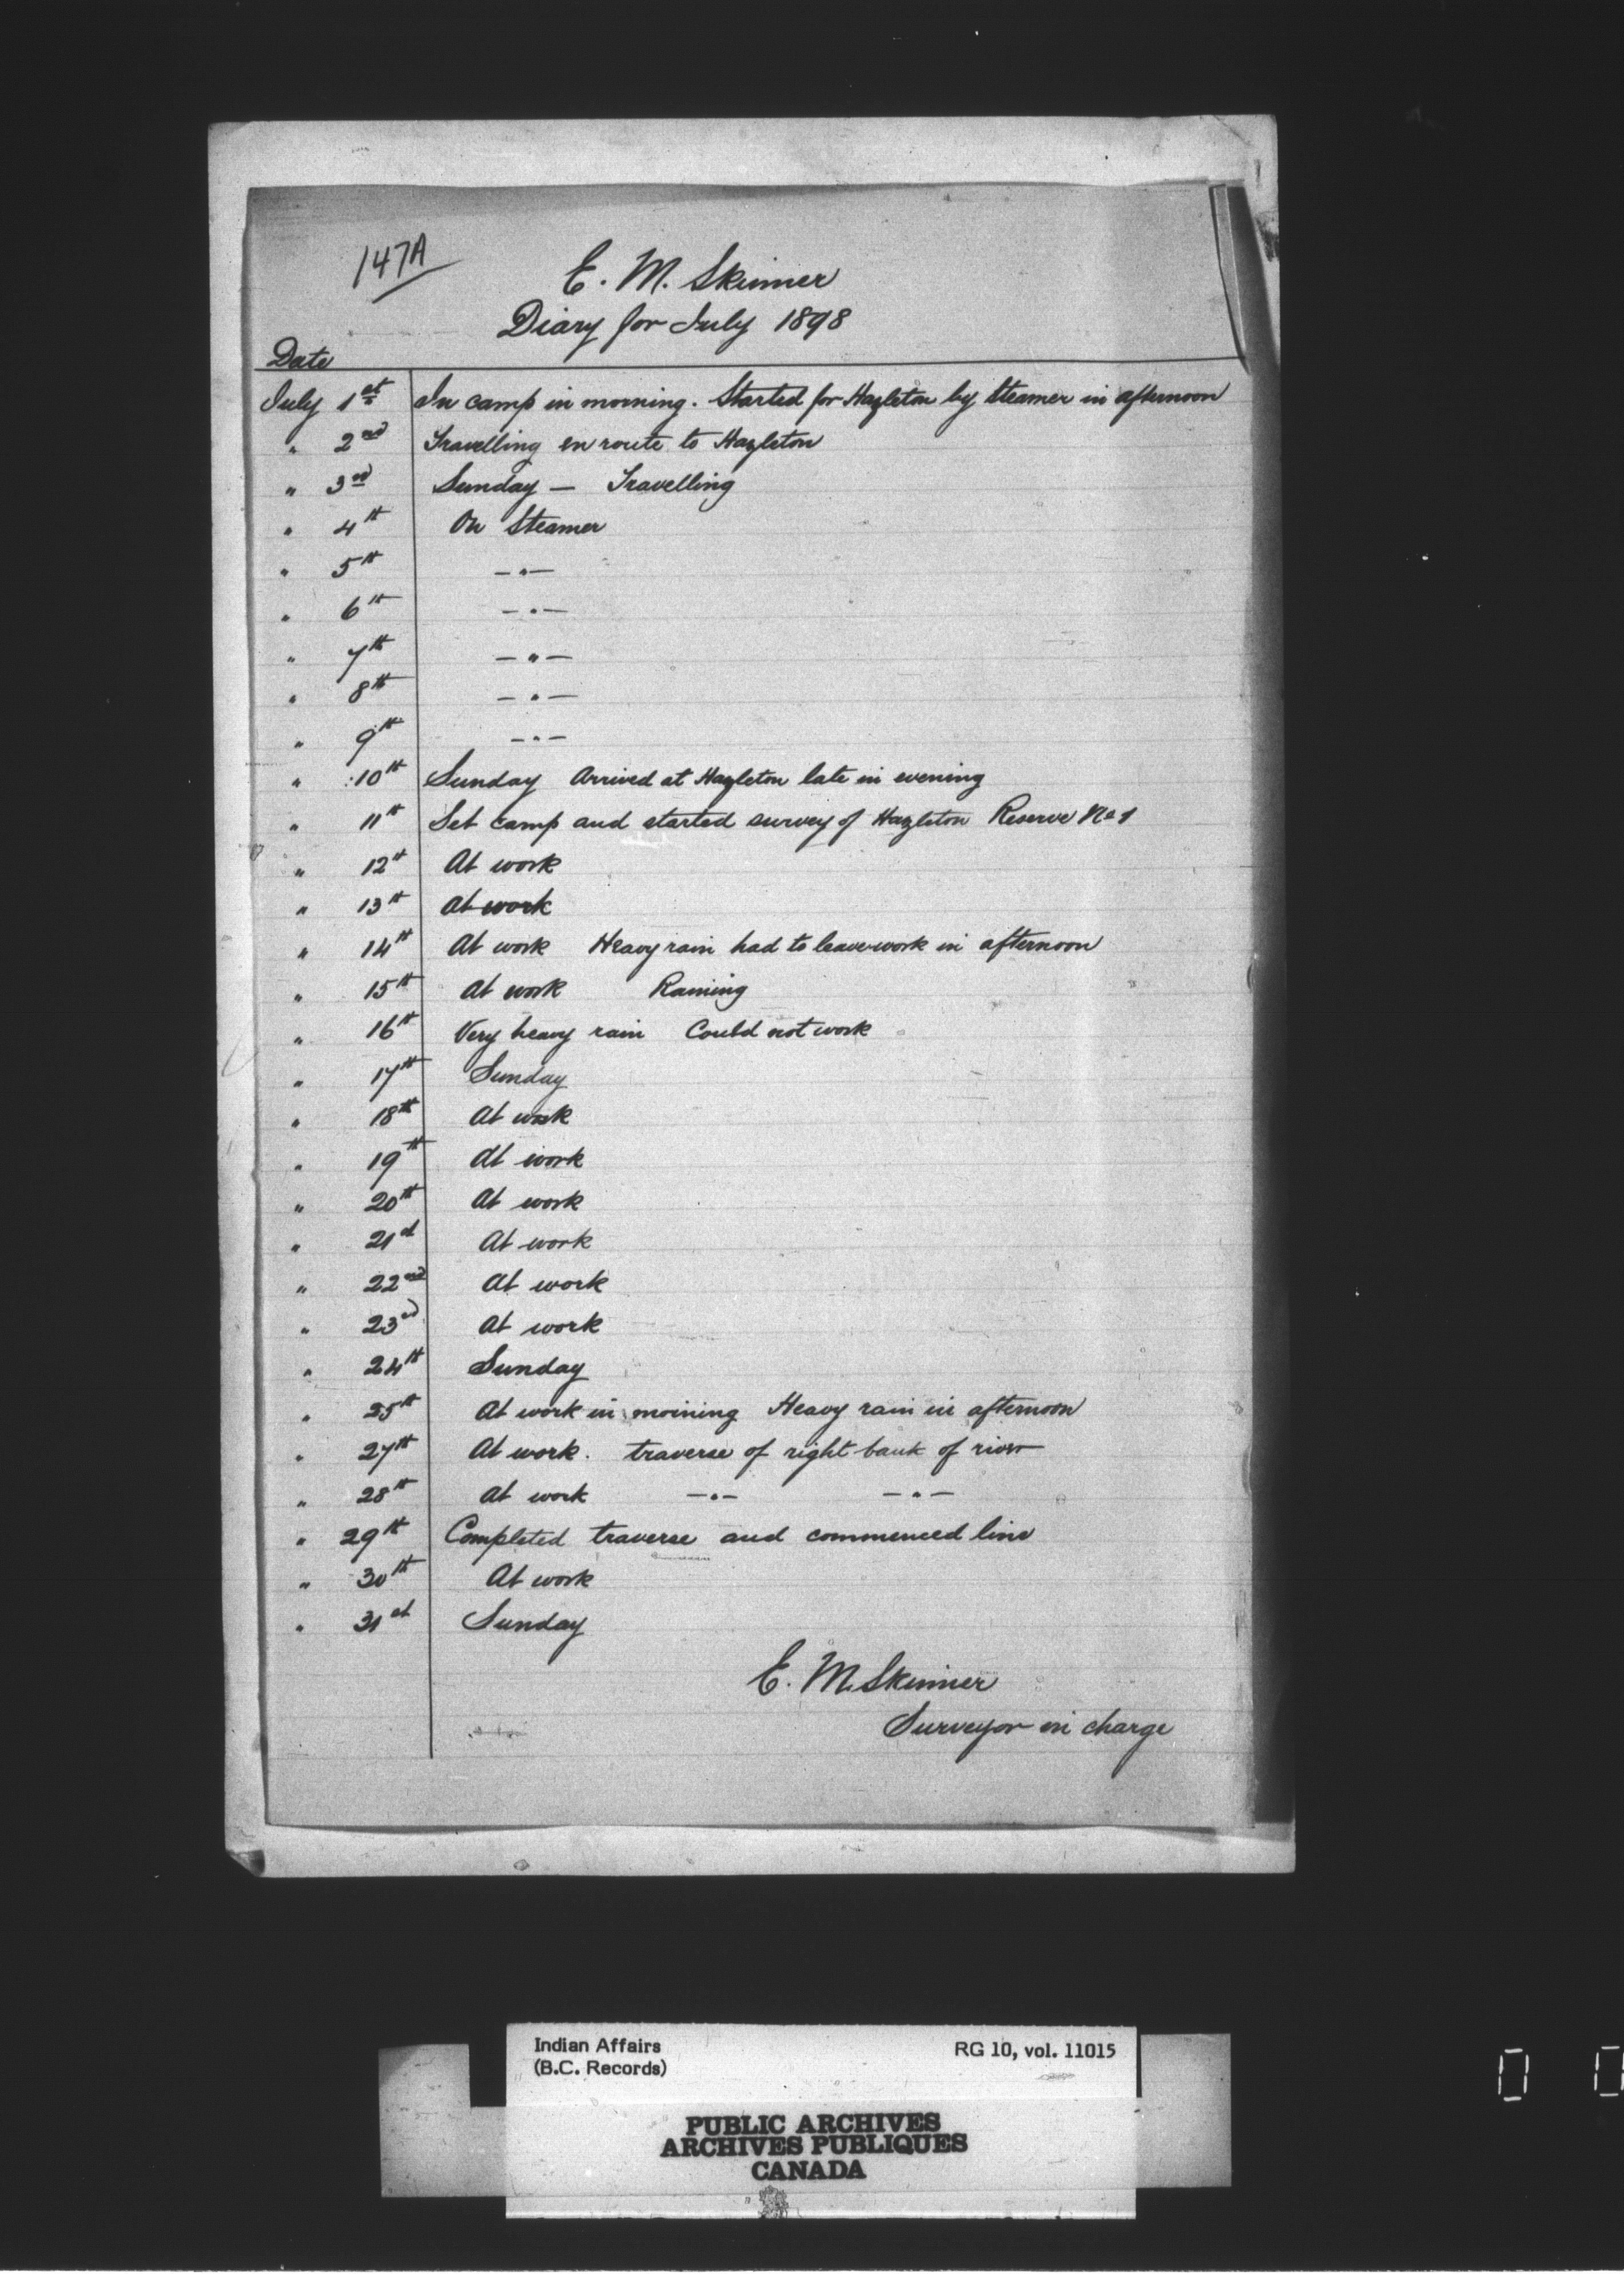 147A
E. M. Skinner
Diary for July 1898
Date
July 1st In camp in morning. Started for Hazleton by Steamer in afternoon
" 2nd Travelling en route to Hazleton
" 3rd Sunday — Travelling
" 4th On Steamer
" 5th — " —
" 6th — " —
" 7th — " —
" 8th — " —
" 9th — " —
" 10th Sunday Arrived at Hazleton late in evening
" 11th Set camp and started survey of Hazleton Reserve No 1
" 12th At work
" 13th At work
" 14th At work Heavy rain had to leave work in afternoon
" 15th At work Raining
" 16th Very heavy rain Could not work
" 17th Sunday
" 18th At work
" 19th At work
" 20th At work
" 21st At work
" 22nd At work
" 23rd At work
" 24th Sunday
" 25th At work in morning Heavy rain in afternoon
" 27th At work. traverse of right bank of river
" 28th At work — " — — " —
" 29th Completed traverse and commenced line
" 30th At work
" 31st Sunday
E. M. Skinner
Surveyor in charge
Indian Affairs
(B.C. Records)
RG 10, vol. 11015
PUBLIC ARCHIVES
ARCHIVES PUBLIQUES
CANADA
0 0